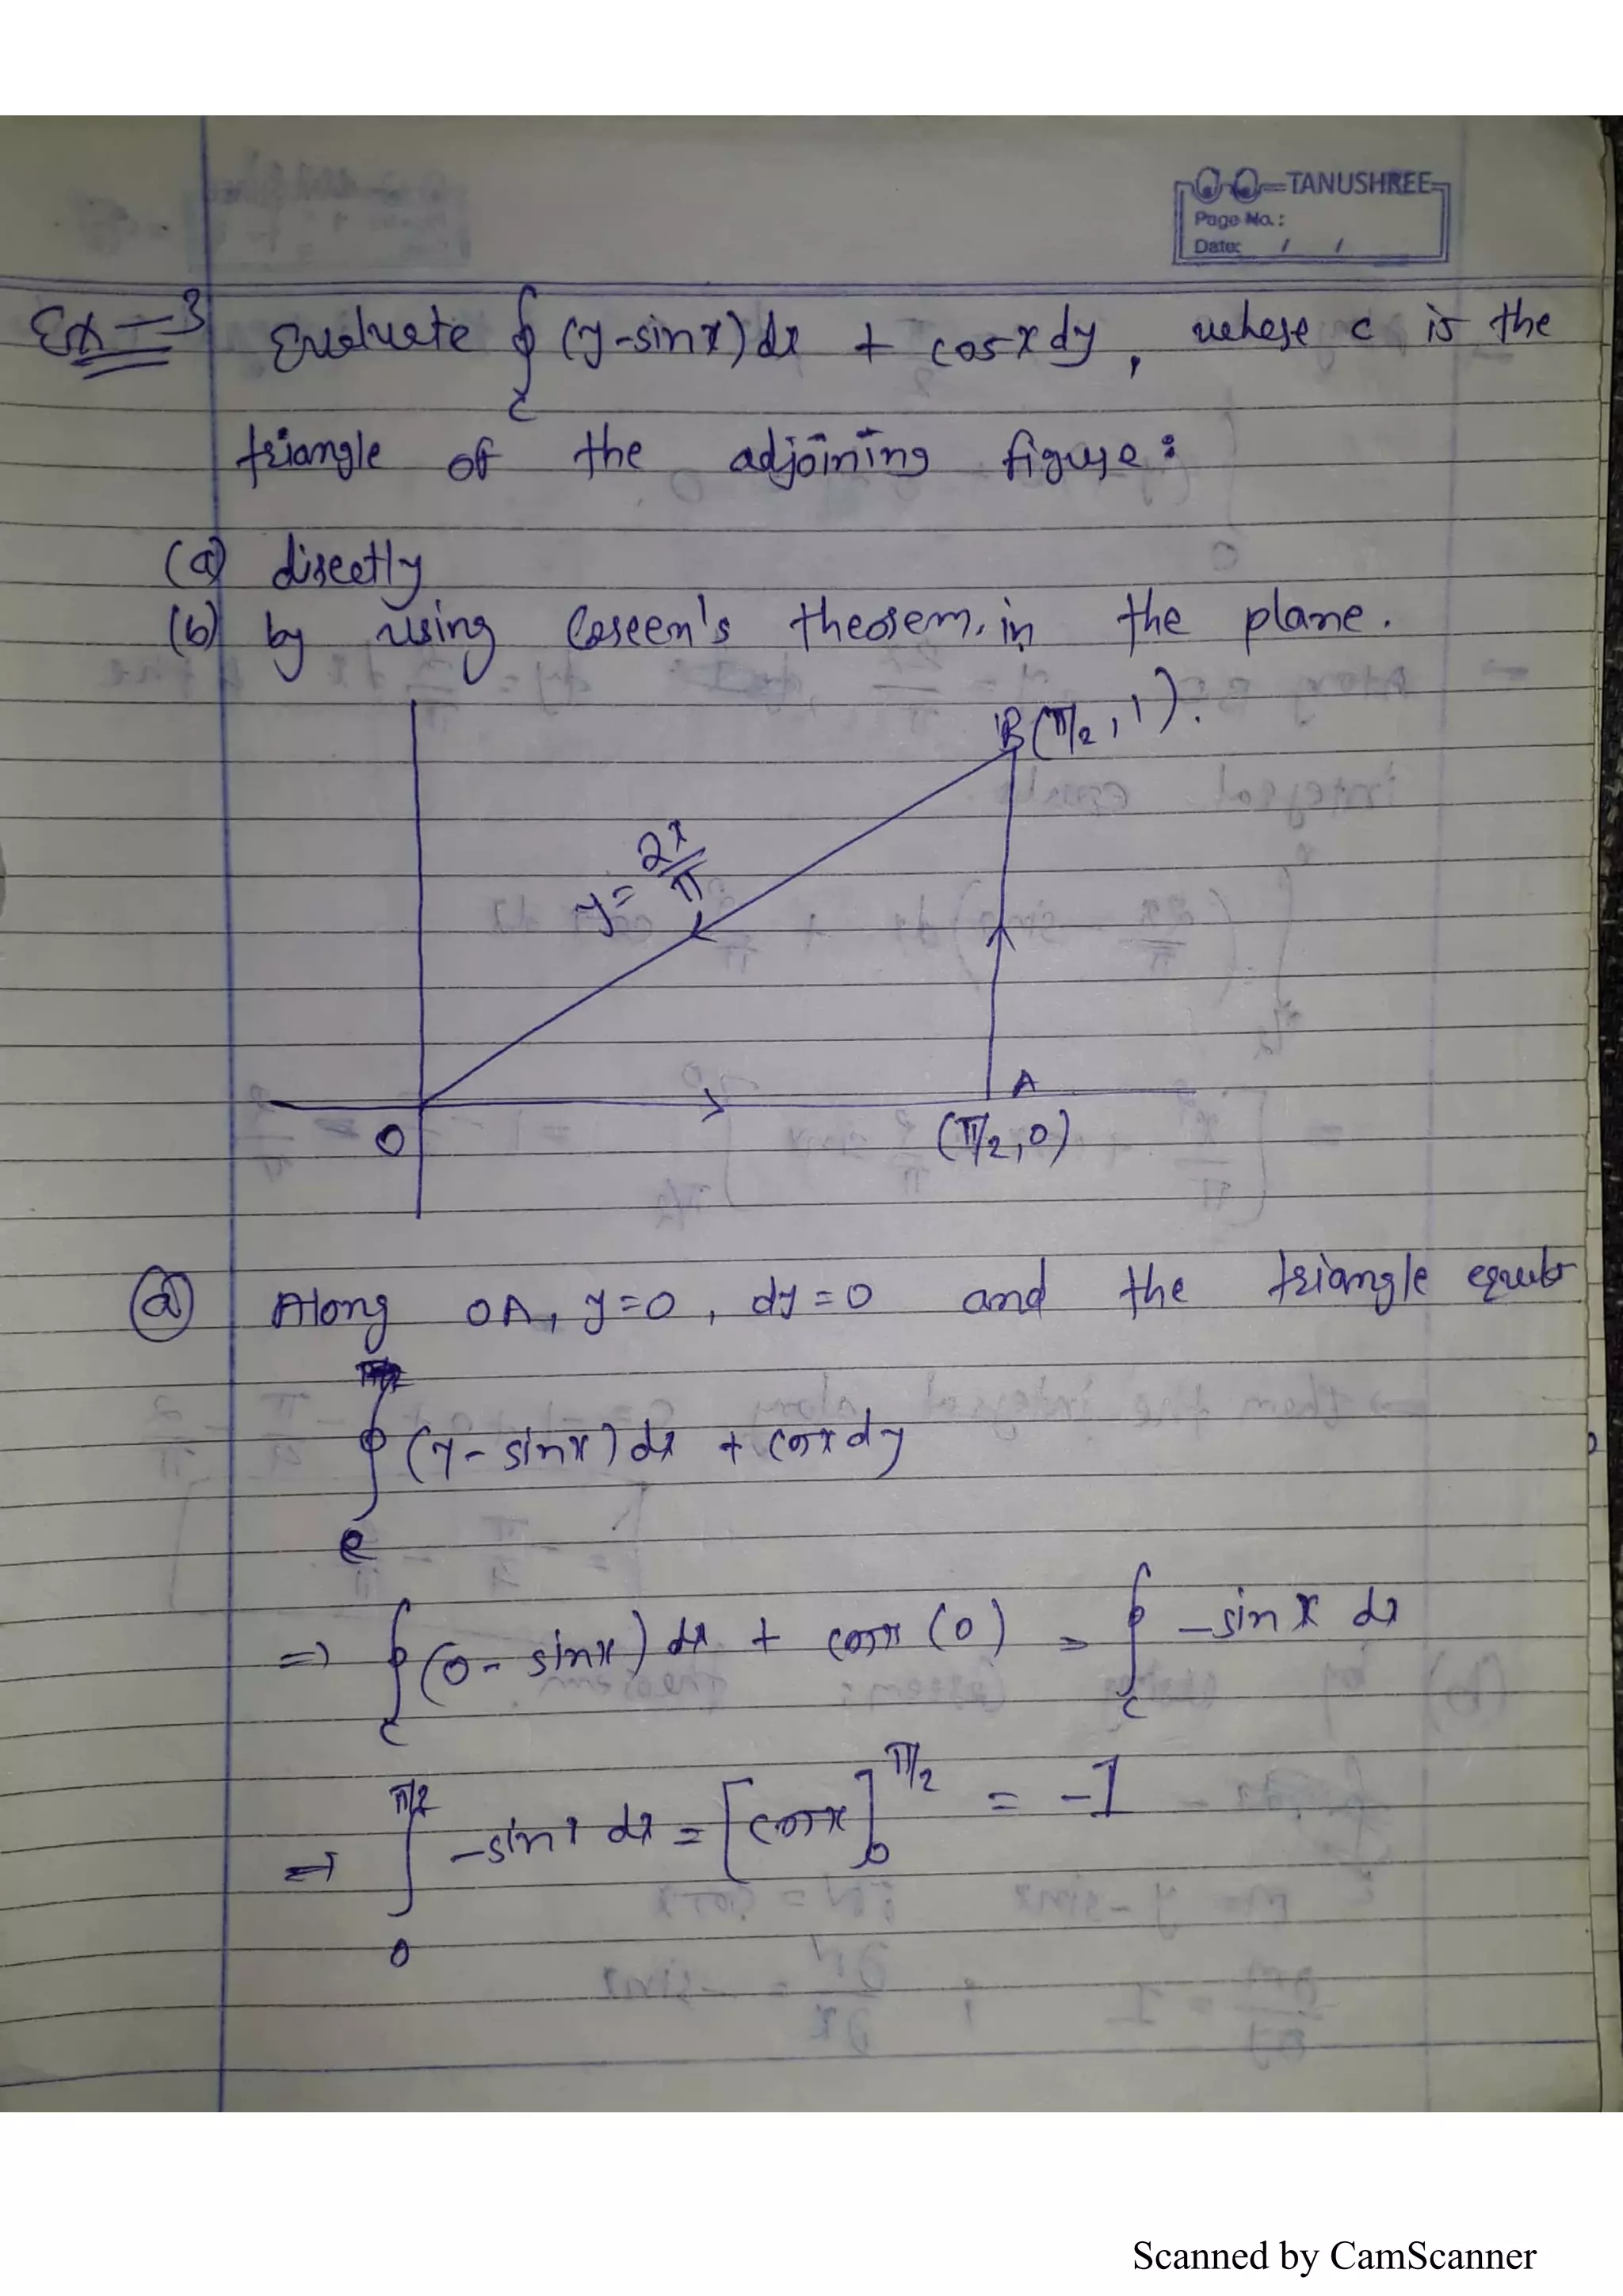 TANUSHREE
Page No.:
Date: / /
Ex-3 Evaluate ∮c (y-sinx)dx + cosx dy, where c is the
triangle of the adjoining figure:
(a) directly
(b) by using Green's theorem in the plane.
B(π/2, 1).
y = 2x/π
A
O
(π/2, 0)
(a) Along OA, y=0, dy=0 and the triangle equals
∮c (y-sinx)dx + cosx dy
⇒ ∮c (0-sinx)dx + cosx (0) = ∮c -sinx dx
⇒ ∫0^π/2 -sinx dx = [cosx]0^π/2 = -1
Scanned by CamScanner